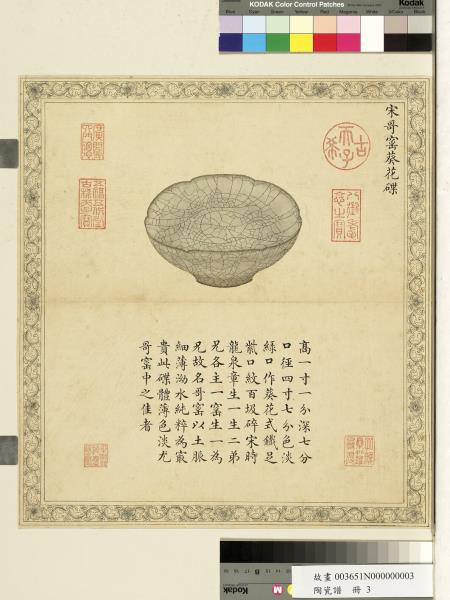 KODAK Color Control Patches
Kodak
Blue Cyan Green Yellow Red Magenta White 3/Color Black
宋哥窰葵花碟
古希天子
八徵耄念之寶
五福五代堂古稀天子寶
高一寸一分深七分
口徑四寸七分色淡
綠口作葵花式鐵足
紫口紋百圾碎宋時
龍泉章生一生二弟
兄各主一窰生一為
兄故名哥窰以土脈
細薄泑水純粹為㝡
貴此碟體薄色淡尤
哥窰中之佳者
故畫 003651N000000003
陶瓷譜 冊 3